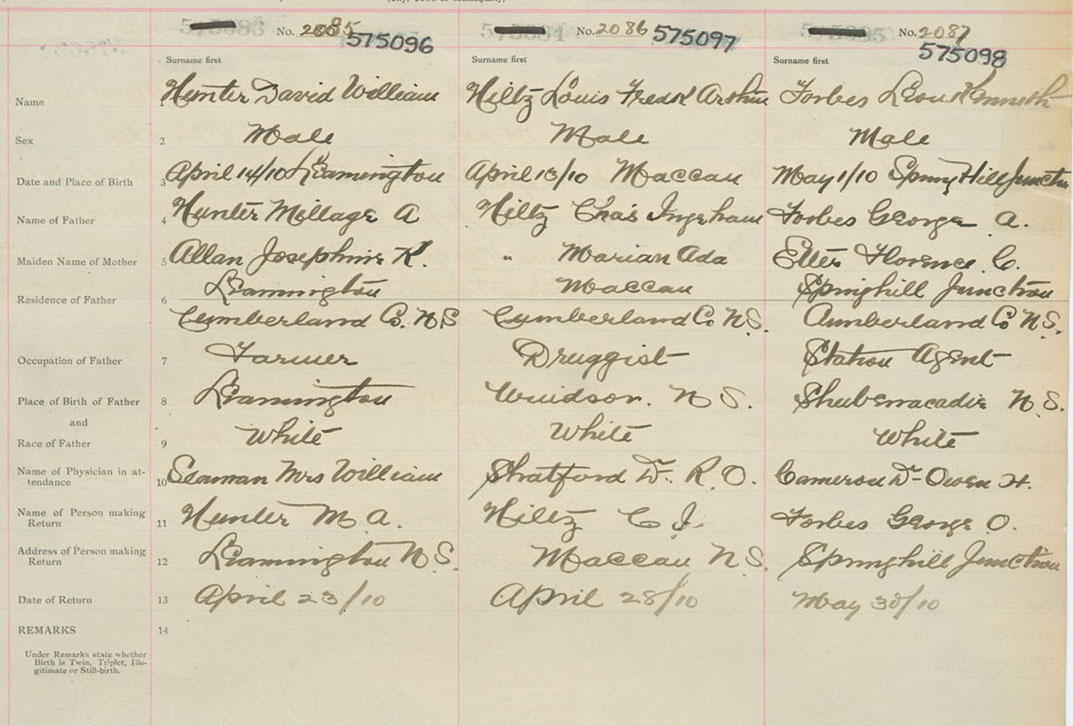 No. 2085 575096 No. 2086 575097 No. 2087 575098
Surname first Surname first Surname first
Name Hunter David William Hiltz Louis Fredk Arthur Forbes Leon Kenneth
Sex 2 Male Male Male
Date and Place of Birth 3 April 14/10 Leamington April 13/10 Maccan May 1/10 Spring Hill Junction
Name of Father 4 Hunter Millage A Hiltz Chas Ingraham Forbes George A.
Maiden Name of Mother 5 Allan Josephine K. " Marian Ada Etter Florence C.
Residence of Father 6 Leamington Maccan Springhill Junction
Cumberland Co. N S Cumberland Co N.S. Cumberland Co N.S.
Occupation of Father 7 Farmer Druggist Station Agent
Place of Birth of Father 8 Leamington Windsor. N S. Shubenacadie N.S.
and
Race of Father 9 White White White
Name of Physician in at-
tendance 10 Seaman Mrs William Stratford Dr. R. O. Cameron Dr Owen H.
Name of Person making
Return 11 Hunter M A. Hiltz C I. Forbes George O.
Address of Person making
Return 12 Leamington N S. Maccan N S. Springhill Junction
Date of Return 13 April 23/10 April 28/10 May 30/10
REMARKS 14
Under Remarks state whether
Birth is Twin, Triplet, Ille-
gitimate or Still-birth.